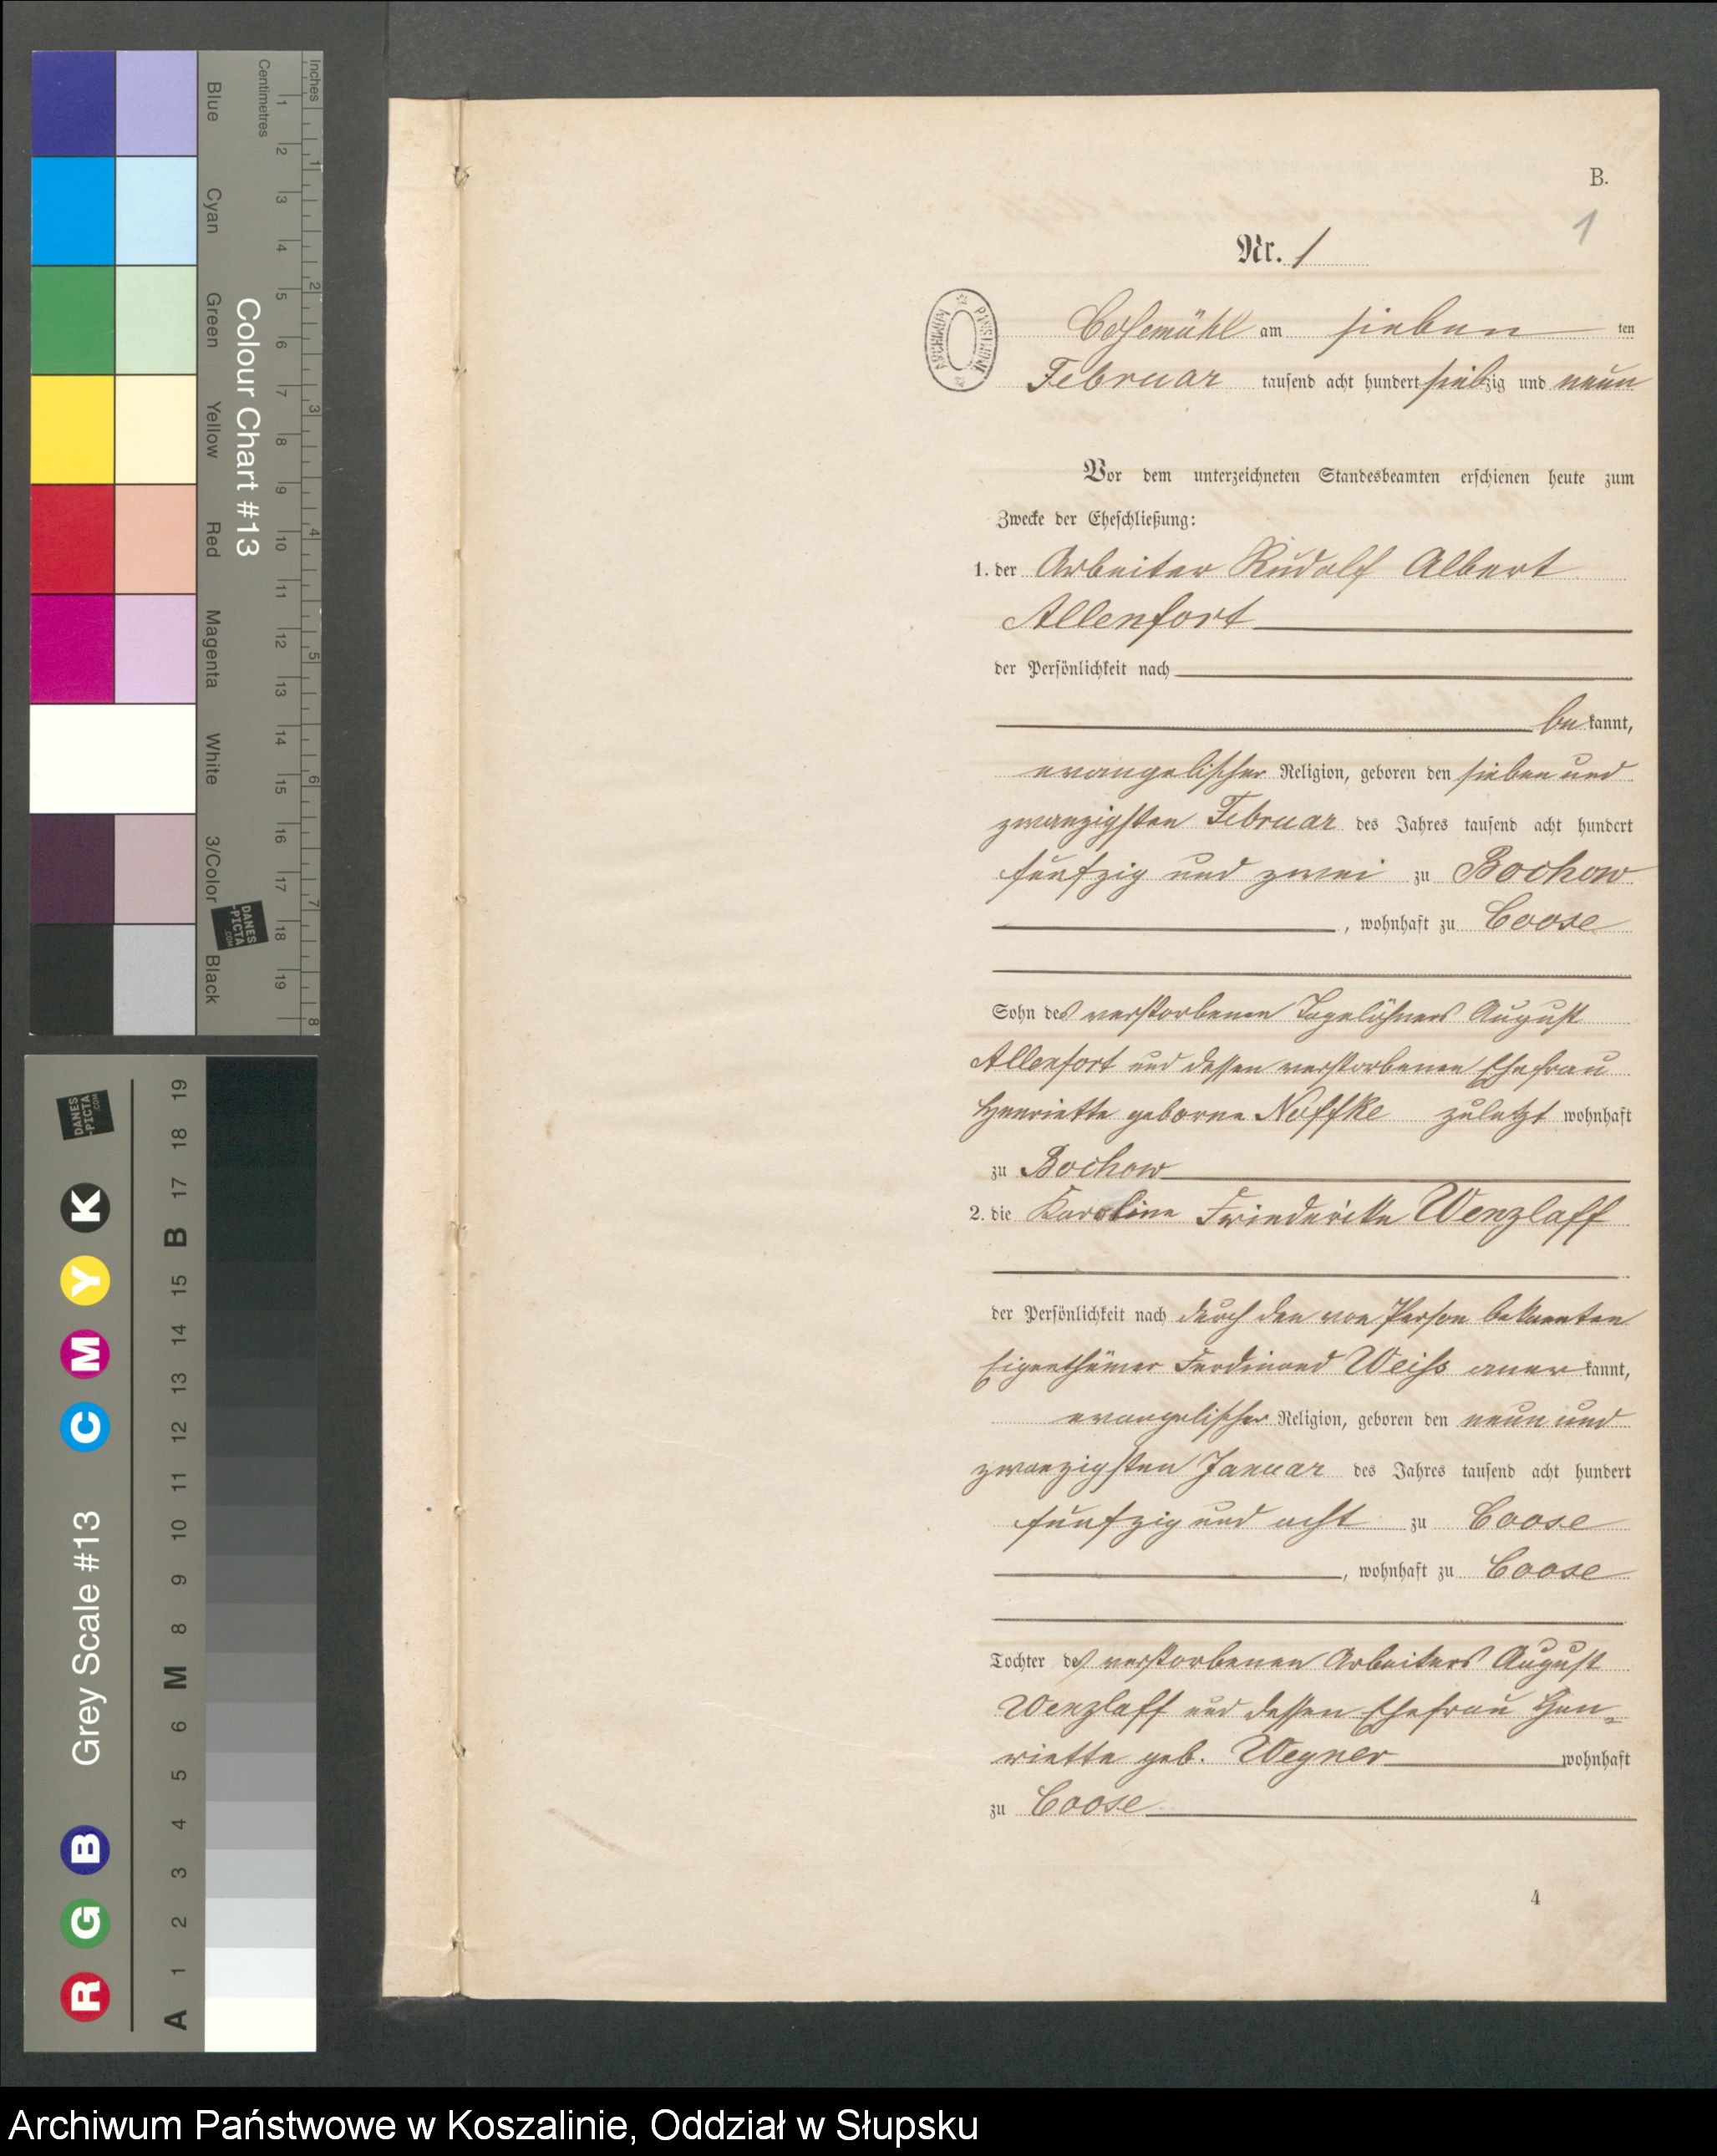 Inches
Centimetres
1 2 3 4 5 6 7 8 9 10 11 12 13 14 15 16 17 18 19
1 2 3 4 5 6 7 8
Colour Chart #13
Blue Cyan Green Yellow Red Magenta White 3/Color Black
DANES
-PICTA
.COM
Grey Scale #13
R G B C M Y K
A 1 2 3 4 5 6 M 8 9 10 11 12 13 14 15 B 17 18 19
DANES
-PICTA
.COM
B.
1
Nr. 1
ARCHIWUM PAŃSTWOWE
Cosemühl am sieben ten
Februar tausend acht hundert siebzig und neun
Vor dem unterzeichneten Standesbeamten erschienen heute zum
Zwecke der Eheschließung:
1. der Arbeiter Rudolf Albert
Allenfort
der Persönlichkeit nach
bekannt,
evangelischer Religion, geboren den sieben und
zwanzigsten Februar des Jahres tausend acht hundert
fünfzig und zwei zu Bochow
, wohnhaft zu Coose
Sohn des verstorbenen Tagelöhners August
Allenfort und dessen verstorbenen Ehefrau
Henriette geborne Noffke zuletzt wohnhaft
zu Bochow
2. die Karoline Friedericke Wenzlaff
der Persönlichkeit nach durch den von Person bekannten
Eigenthümer Ferdinand Weiss anerkannt,
evangelischer Religion, geboren den neun und
zwanzigsten Januar des Jahres tausend acht hundert
fünfzig und acht zu Coose
, wohnhaft zu Coose
Tochter des verstorbenen Arbeiters August
Wenzlaff und dessen Ehefrau Hen-
riette geb. Wegner wohnhaft
zu Coose
4
Archiwum Państwowe w Koszalinie, Oddział w Słupsku